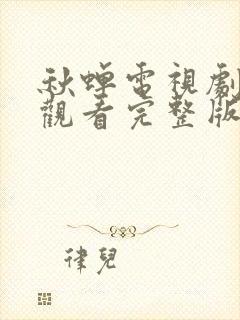 秋蟬電視劇
觀看完整版
律兒